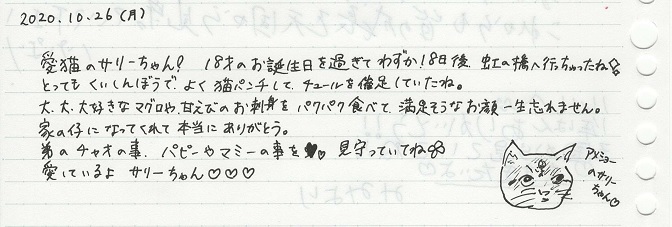 2020.10.26(月)
愛猫のサリーちゃん♪ 18才のお誕生日を過ぎてわずか18日後、虹の橋へ行っちゃったね
とってもくいしんぼうで、よく猫パンチして、チュールを催促していたね。
大、大、大好きなマグロや、甘えびのお刺身をパクパク食べて、満足そうなお顔一生忘れません。
家の仔になってくれて本当にありがとう。
弟のチャオの事、パピーやマミーの事を♥♡ 見守っていてね
愛しているよ サリーちゃん♡♡♡
アメショー
のサリー
ちゃん♡